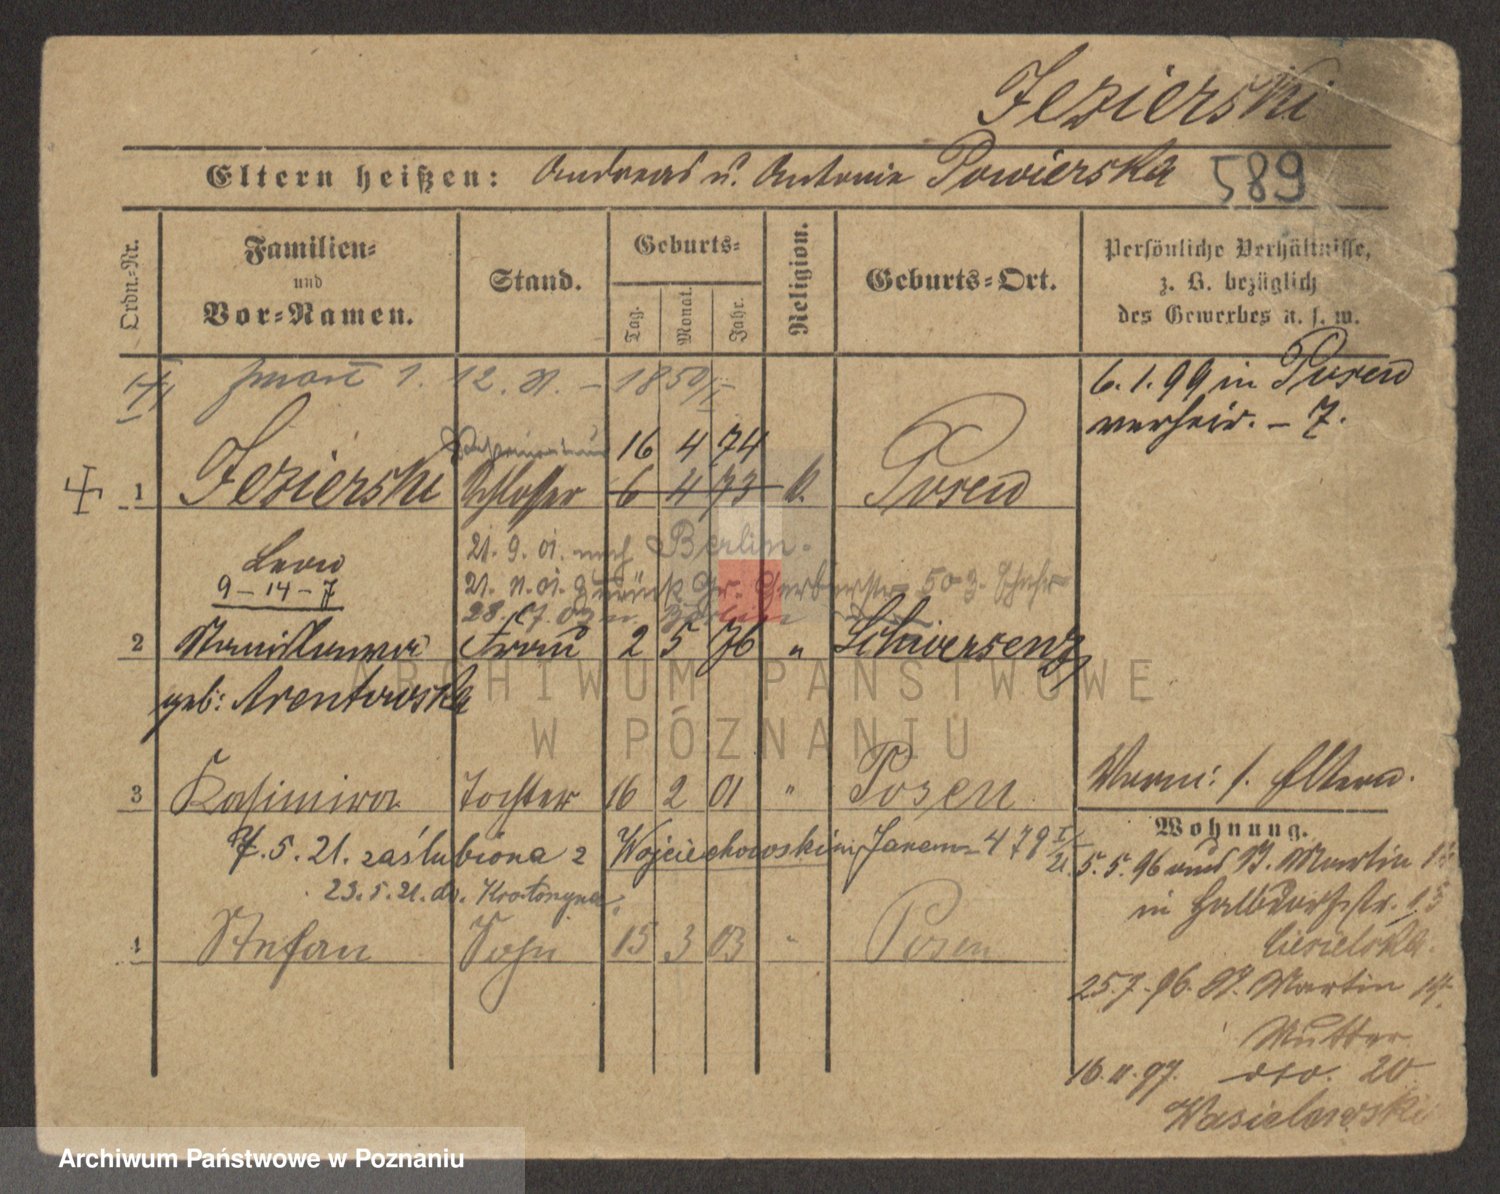 Jezierski
Eltern heißen: Andreas u. Antonie Powierska 589
Ordn.-Nr.
Familien-
und
Vor-Namen.
Stand.
Geburts-
Tag.
Monat.
Jahr.
Religion.
Geburts-Ort.
Persönliche Verhältnisse,
z. B. bezüglich
des Gewerbes u. s. w.
zmarł 1. 12. 11. – 1850/
6. 1. 99 in Posen
verheir. – 7.
16 4 74
1 Jezierski Schlosser 6 4 73 k. Posen
Leon
9 – 14 – 7
21. 9. 01. nach Berlin.
21. 11. 01. zurück Gr. Gerberstr. 50
2 Stanislawa Frau 2 5 76 " Schwersenz
geb: Arentowska
3 Kasimira Tochter 16 2 01 " Posen
7. 5. 21. zaślubiona z Wojciechowskim Janem 479
23. 5. 21. do. Krotoszyna
4 Stefan Sohn 15 3 03 " Posen
Verm: s. Eltern.
Wohnung.
5. 5. 96 St. Martin
in Halbdorfstr. 15
Ciesielska.
25. 7. 96. St. Martin
Mutter
16. 11. 97. dto. 20
Wasielewski
ARCHIWUM PAŃSTWOWE
W POZNANIU
Archiwum Państwowe w Poznaniu